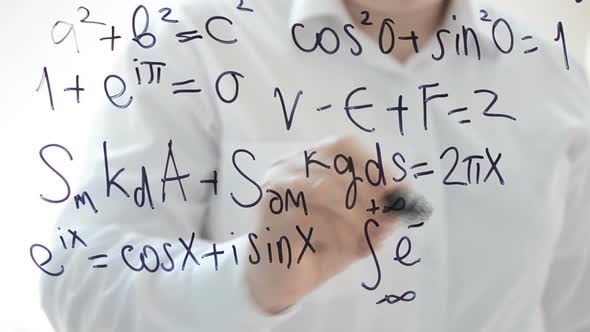 a² + b² = c²
cos²0 + sin²0 = 1
1 + e^iπ = 0
V - E + F = 2
S_m k dA + S_∂M kg ds = 2πX
e^ix = cosX + i sinX
∫_-∞^+∞ e^-